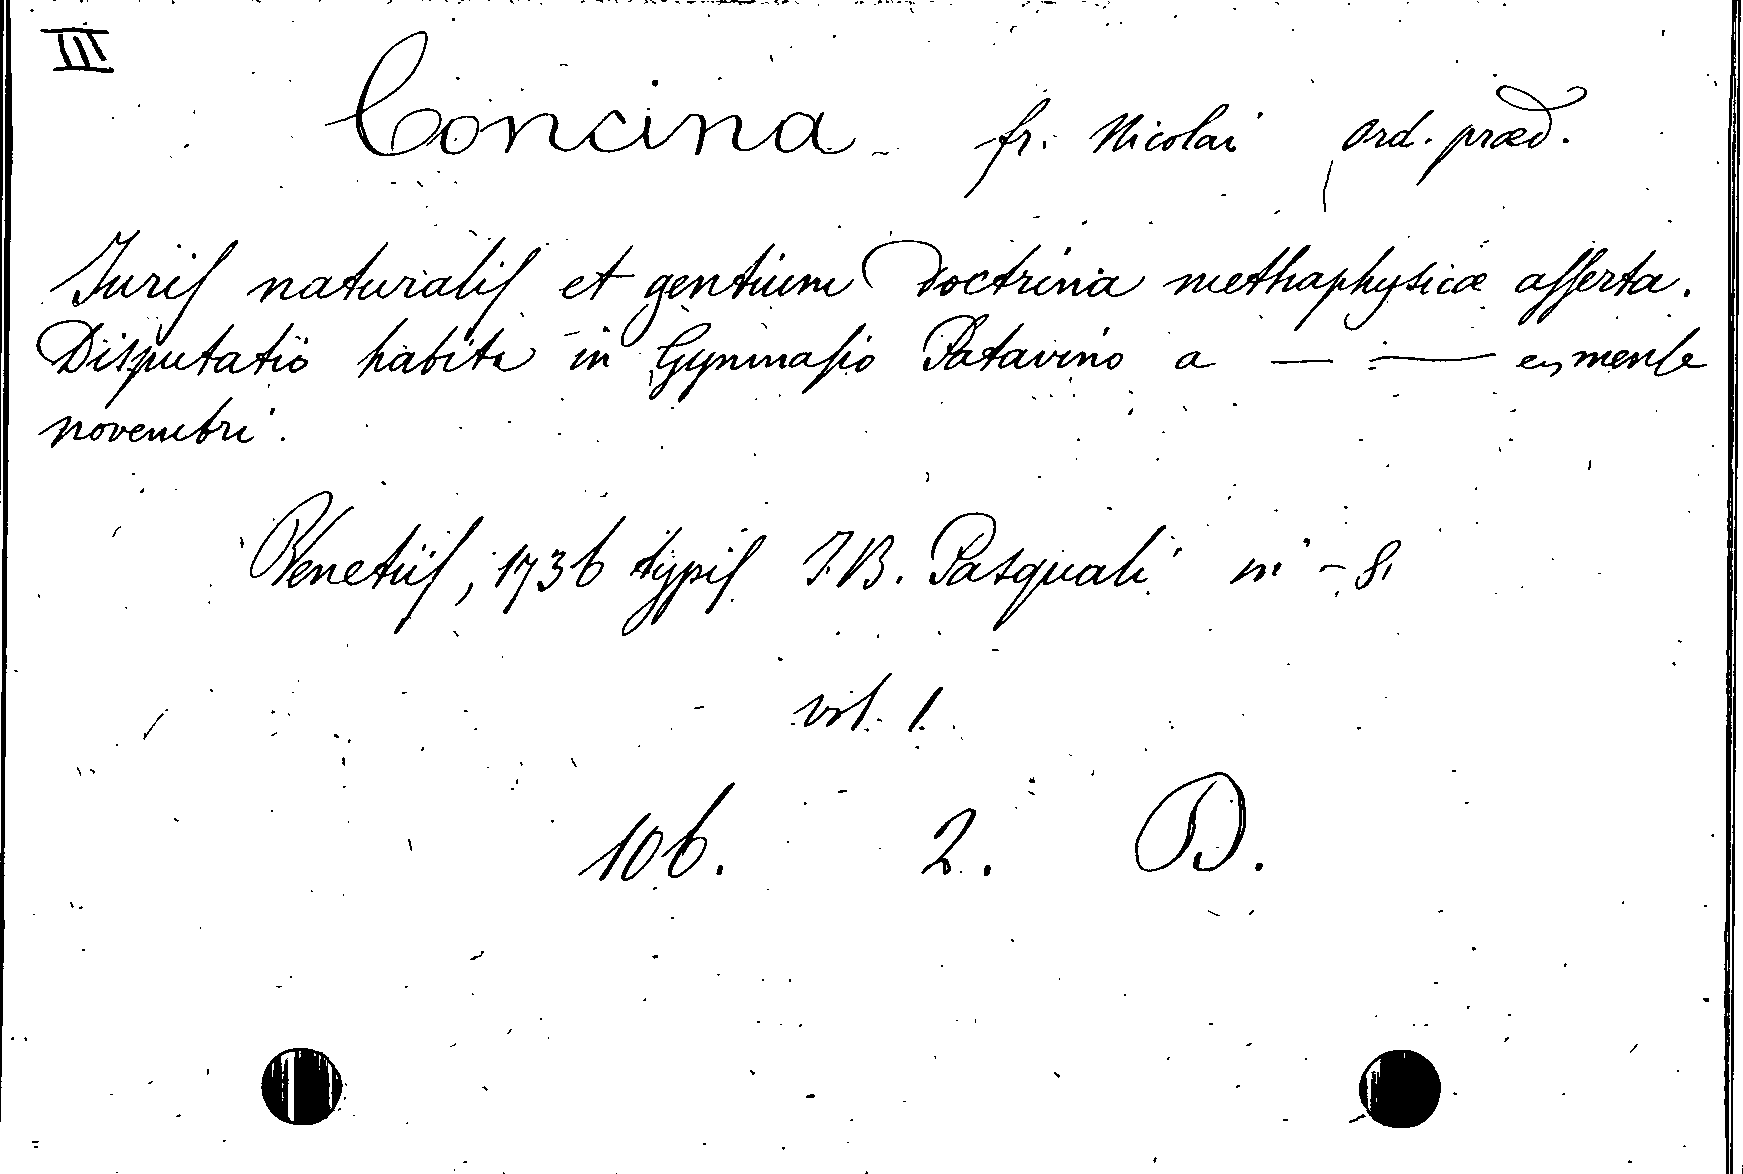 III
Concina - fr. Nicolai ord. præd.
Juris naturalis et gentium doctrina methaphysicæ asserta.
Disputatio habita in Gymnasio Patavino a — — mense
novembri.
Venetiis, 1736 typis J.B. Pasquali in - 8.
vol. 1.
106. 2. B.